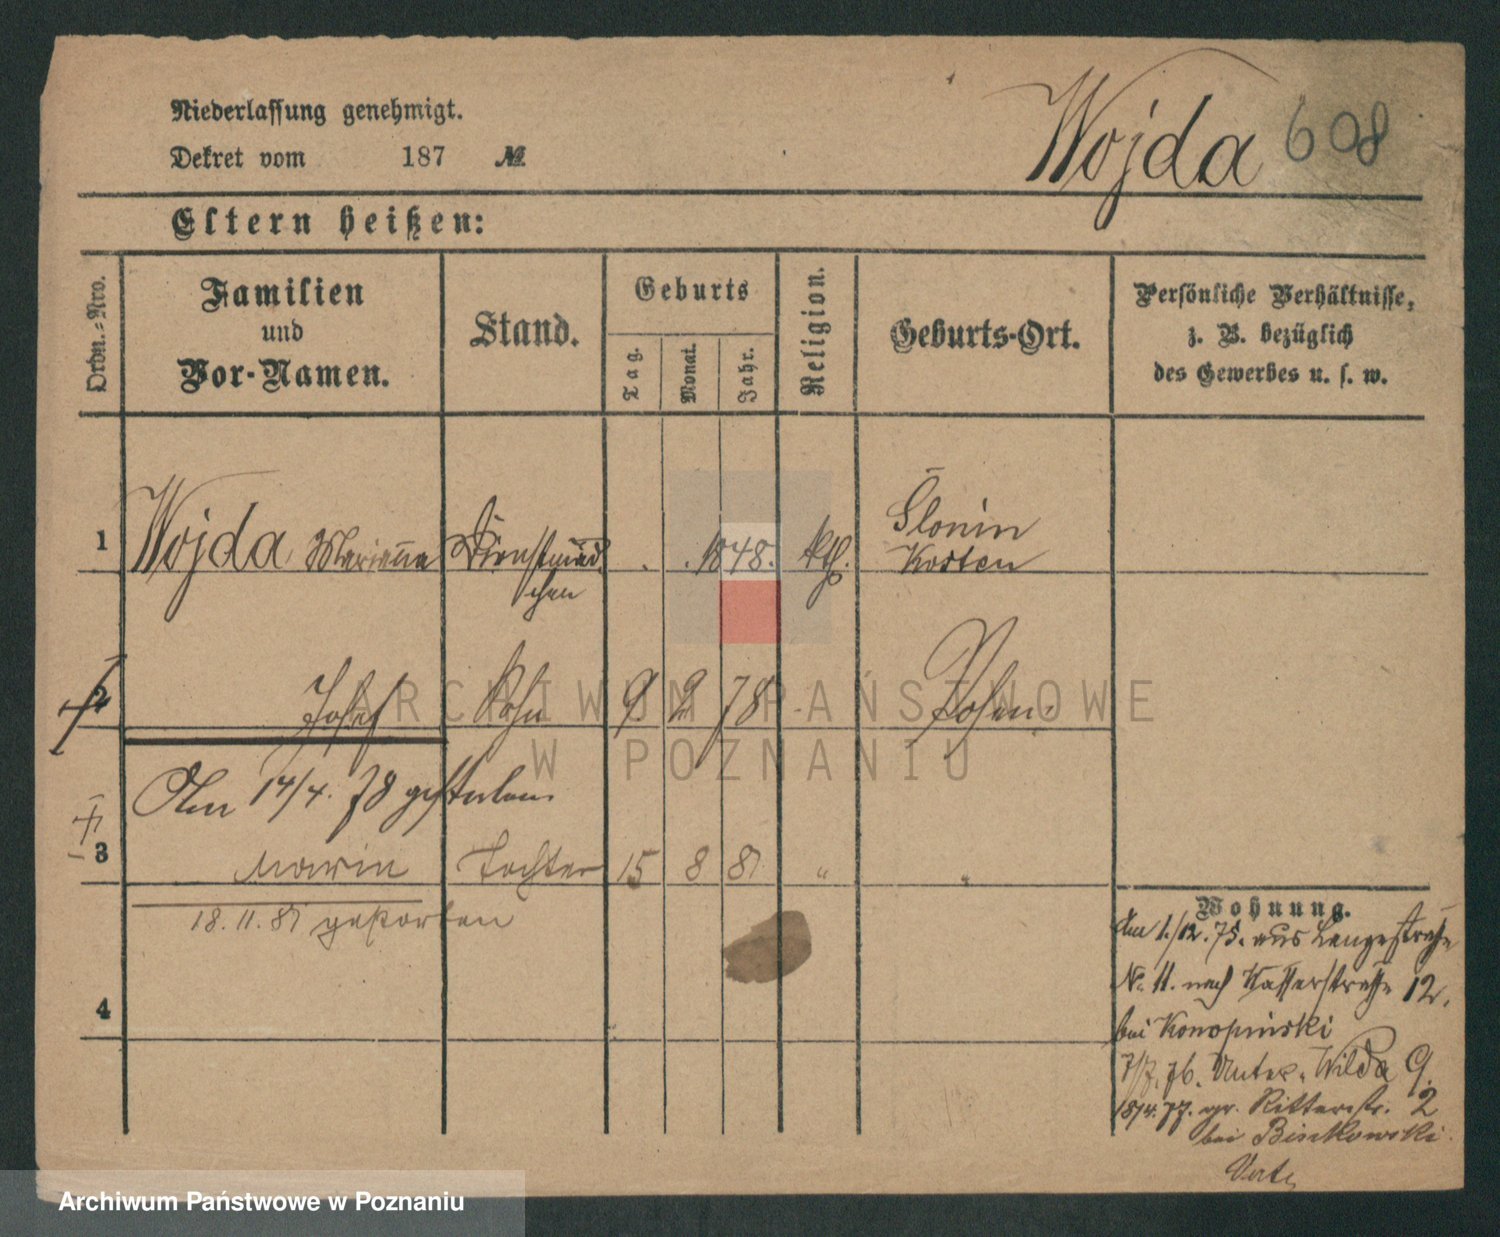 Niederlassung genehmigt.
Dekret vom 187 №
Wojda 608
Eltern heißen:
Ordn.-Nro.
Familien
und
Vor-Namen.
Stand.
Geburts
Tag.
Monat.
Jahr.
Religion.
Geburts-Ort.
Persönliche Verhältnisse,
z. B. bezüglich
des Gewerbes u. s. w.
1 Wojda Marianna Dienstmäd
chen
. . 1848. kth. Slonin
Kosten
2 Josef Sohn 9. 2 78 Posen.
Am 14/4. 78 gestorben
3 Marie Tochter 15 8 81 " "
18.11.81 gestorben
4
Wohnung.
Am 1./12. 75. aus Langestraße
No 11. nach Wasserstraße 12.
bei Konopinski
7/7. 76. Unter-Wilda 9.
18/4. 77. gr. Ritterstr. 2
bei Biskowski
ARCHIWUM PAŃSTWOWE
W POZNANIU
Archiwum Państwowe w Poznaniu